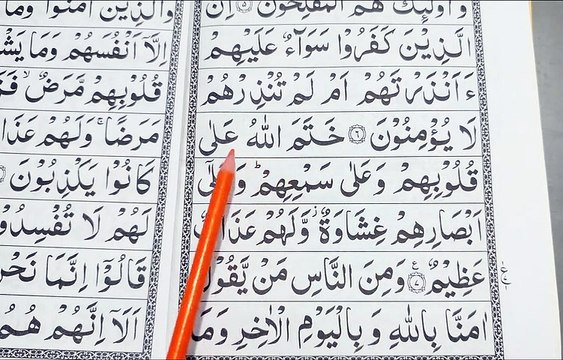 وَاُولٰٓئِكَ هُمُ الْمُفْلِحُوْنَ ۝٥ اِنَّ
الَّذِيْنَ كَفَرُوْا سَوَآءٌ عَلَيْهِمْ
ءَاَنْذَرْتَهُمْ اَمْ لَمْ تُنْذِرْهُمْ
لَا يُؤْمِنُوْنَ ۝٦ خَتَمَ اللّٰهُ عَلٰى
قُلُوْبِهِمْ وَعَلٰى سَمْعِهِمْ ؕ وَعَلٰٓى
اَبْصَارِهِمْ غِشَاوَةٌ ز وَّلَهُمْ عَذَابٌ
عَظِيْمٌ ۝٧ وَمِنَ النَّاسِ مَنْ يَّقُوْلُ
اٰمَنَّا بِاللّٰهِ وَ بِالْيَوْمِ الْاٰخِرِ وَمَا
وَالَّذِيْنَ اٰمَنُوْا وَمَا
اِلَّآ اَنْفُسَهُمْ وَمَا
قُلُوْبِهِمْ مَّرَضٌ ۙ
مَرَضًا ۚ وَلَهُمْ
كَانُوْا يَكْذِبُوْنَ
لَهُمْ لَا
قَالُوْٓا اِنَّمَا
اَلَآ اِنَّهُمْ هُمُ